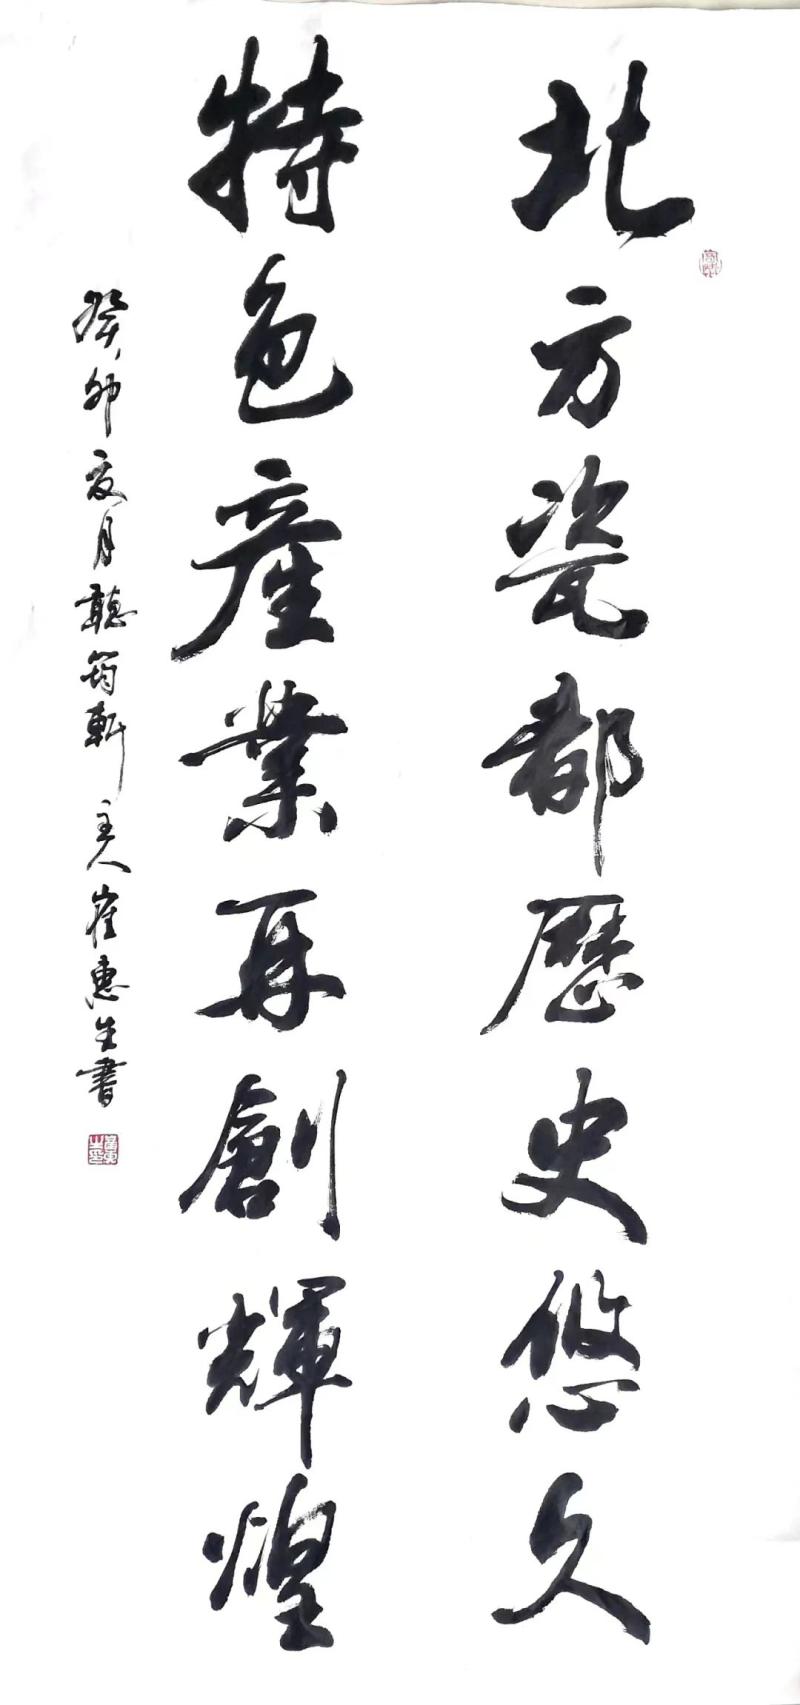 北方瓷都歷史悠久
特色產業再創輝煌
癸卯夏月聽筠軒主人崔惠生書